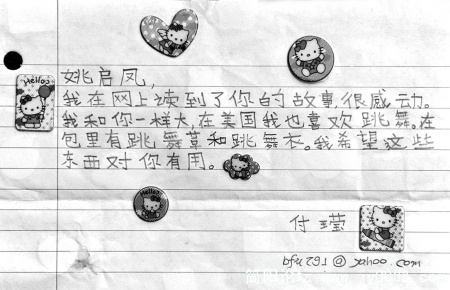 Hello
姚启凤,
我在网上读到了你的故事很感动。
我和你一样大,在美国我也喜欢跳舞。在
包里有跳舞鞋和跳舞衣。我希望这些
东西对你有用。
Hello
付莹
@yahoo.com